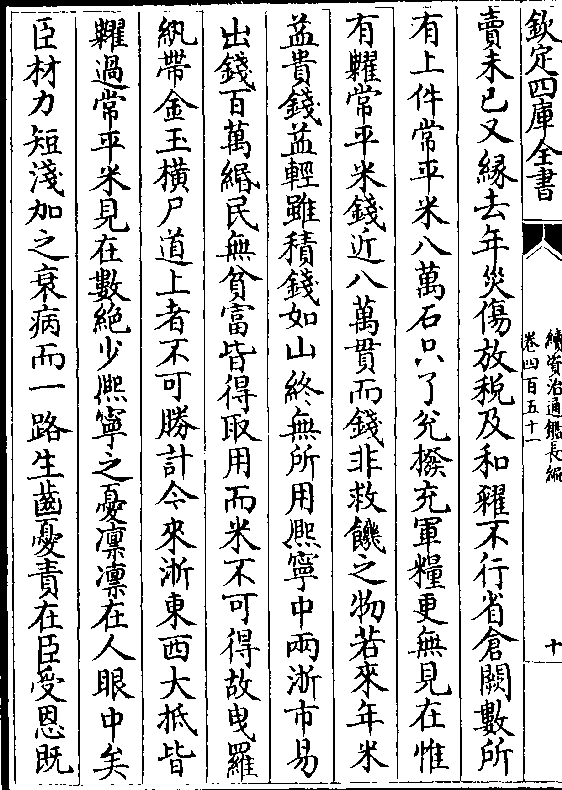 欽定四庫全書
續資治通鑑長編
卷四百五十一
十
賣未已又緣去年災傷放稅及和糴不行省倉闕數所
有上件常平米八萬石只了兊撥充軍糧更無見在惟
有糶常平米錢近八萬貫而錢非救饑之物若來年米
益貴錢益輕雖積錢如山終無所用熈寧中兩浙市易
出錢百萬緡民無貧富皆得取用而米不可得故曳羅
紈帶金玉橫尸道上者不可勝計今來浙東西大抵皆
糶過常平米見在數絶少熈寧之憂凛凛在人眼中矣
臣材力短淺加之衰病而一路生齒憂責在臣受恩既